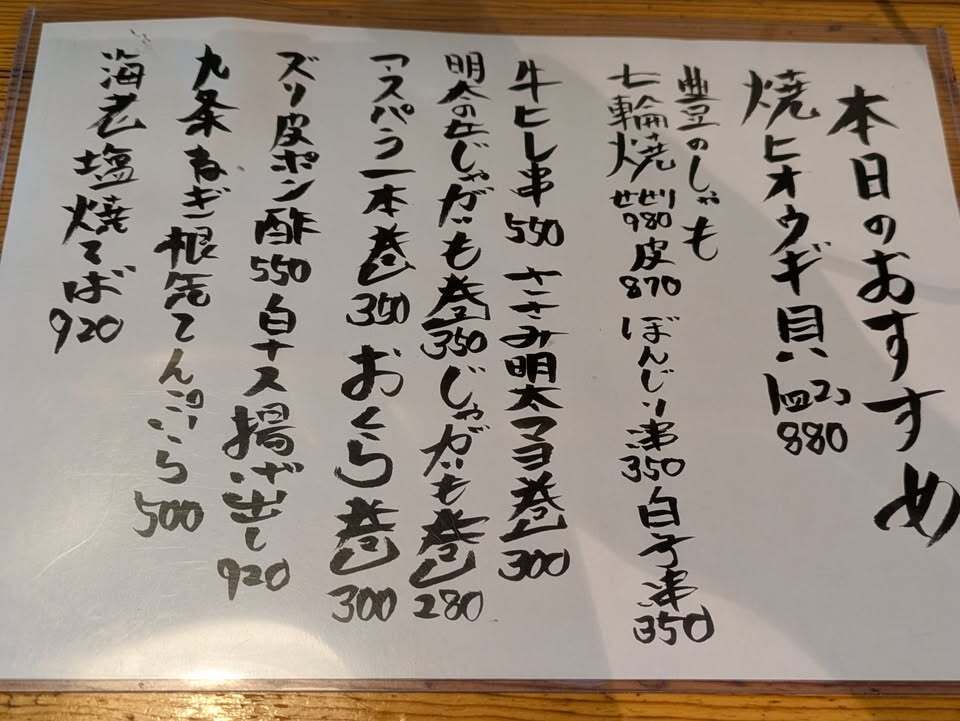 本日のおすすめ
焼ヒオウギ貝 1皿2コ 880
豊のしゃも
七輪焼 せせり 980 皮 870 ぼんじり串 350 白子串 350
牛ヒレ串 550 ささみ明太マヨ巻 300
明太のせじゃがいも巻 350 じゃがいも巻 280
アスパラ一本巻 350 おくら巻 300
ズリ皮ポン酢 550 白ナス揚げ出し 920
九条ねぎ根 てんぷら 500
海老塩焼そば 920